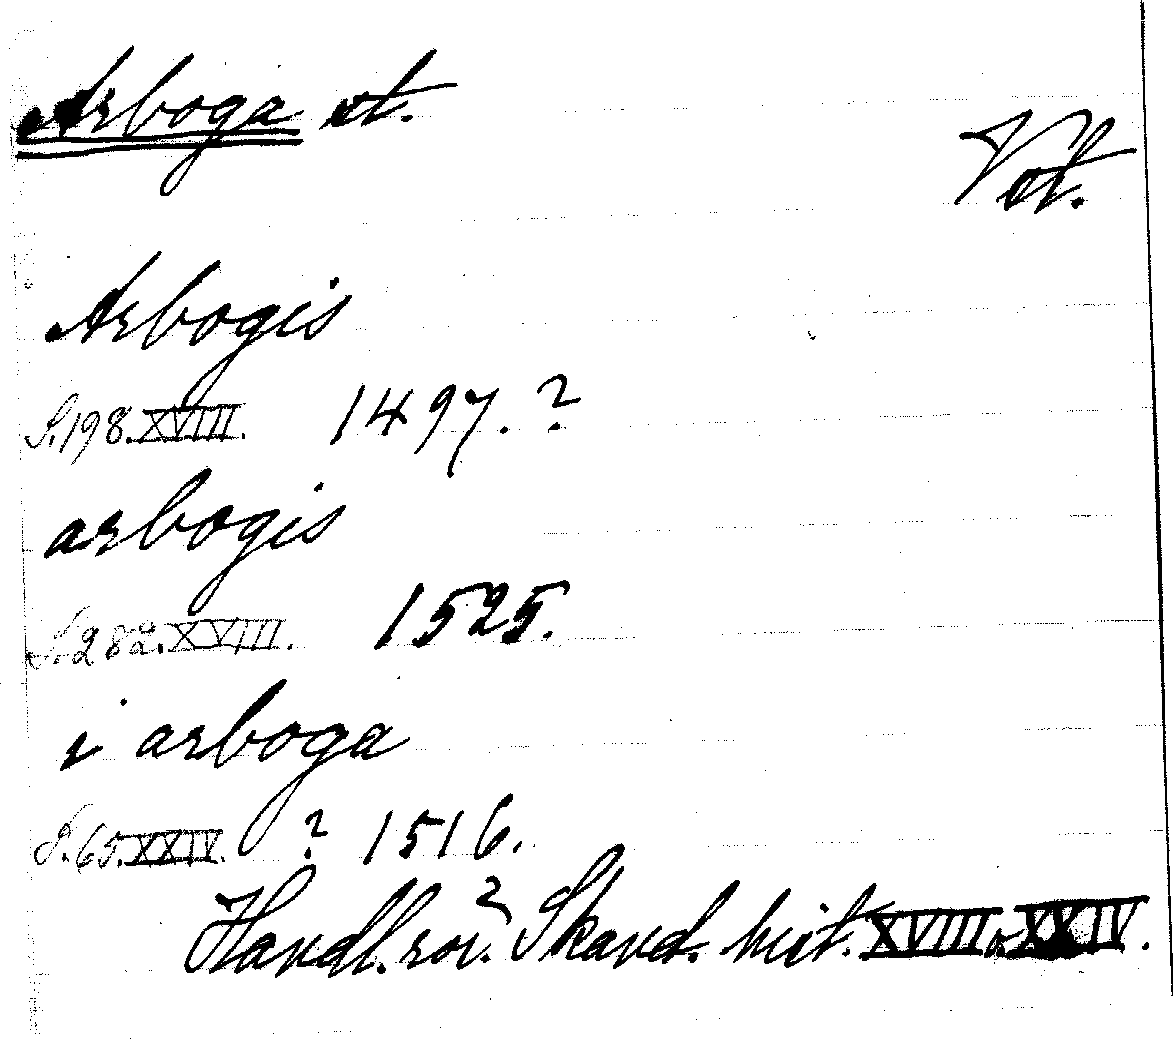 Arboga st.
Vst.
Arbogis
S. 198. XVIII. 1497. ?
arbogis
S. 282. XVIII. 1525.
i arboga
S. 65. XXIV. ? 1516.
Handl. rör. Skand. hist. XVIII o. XXIV.